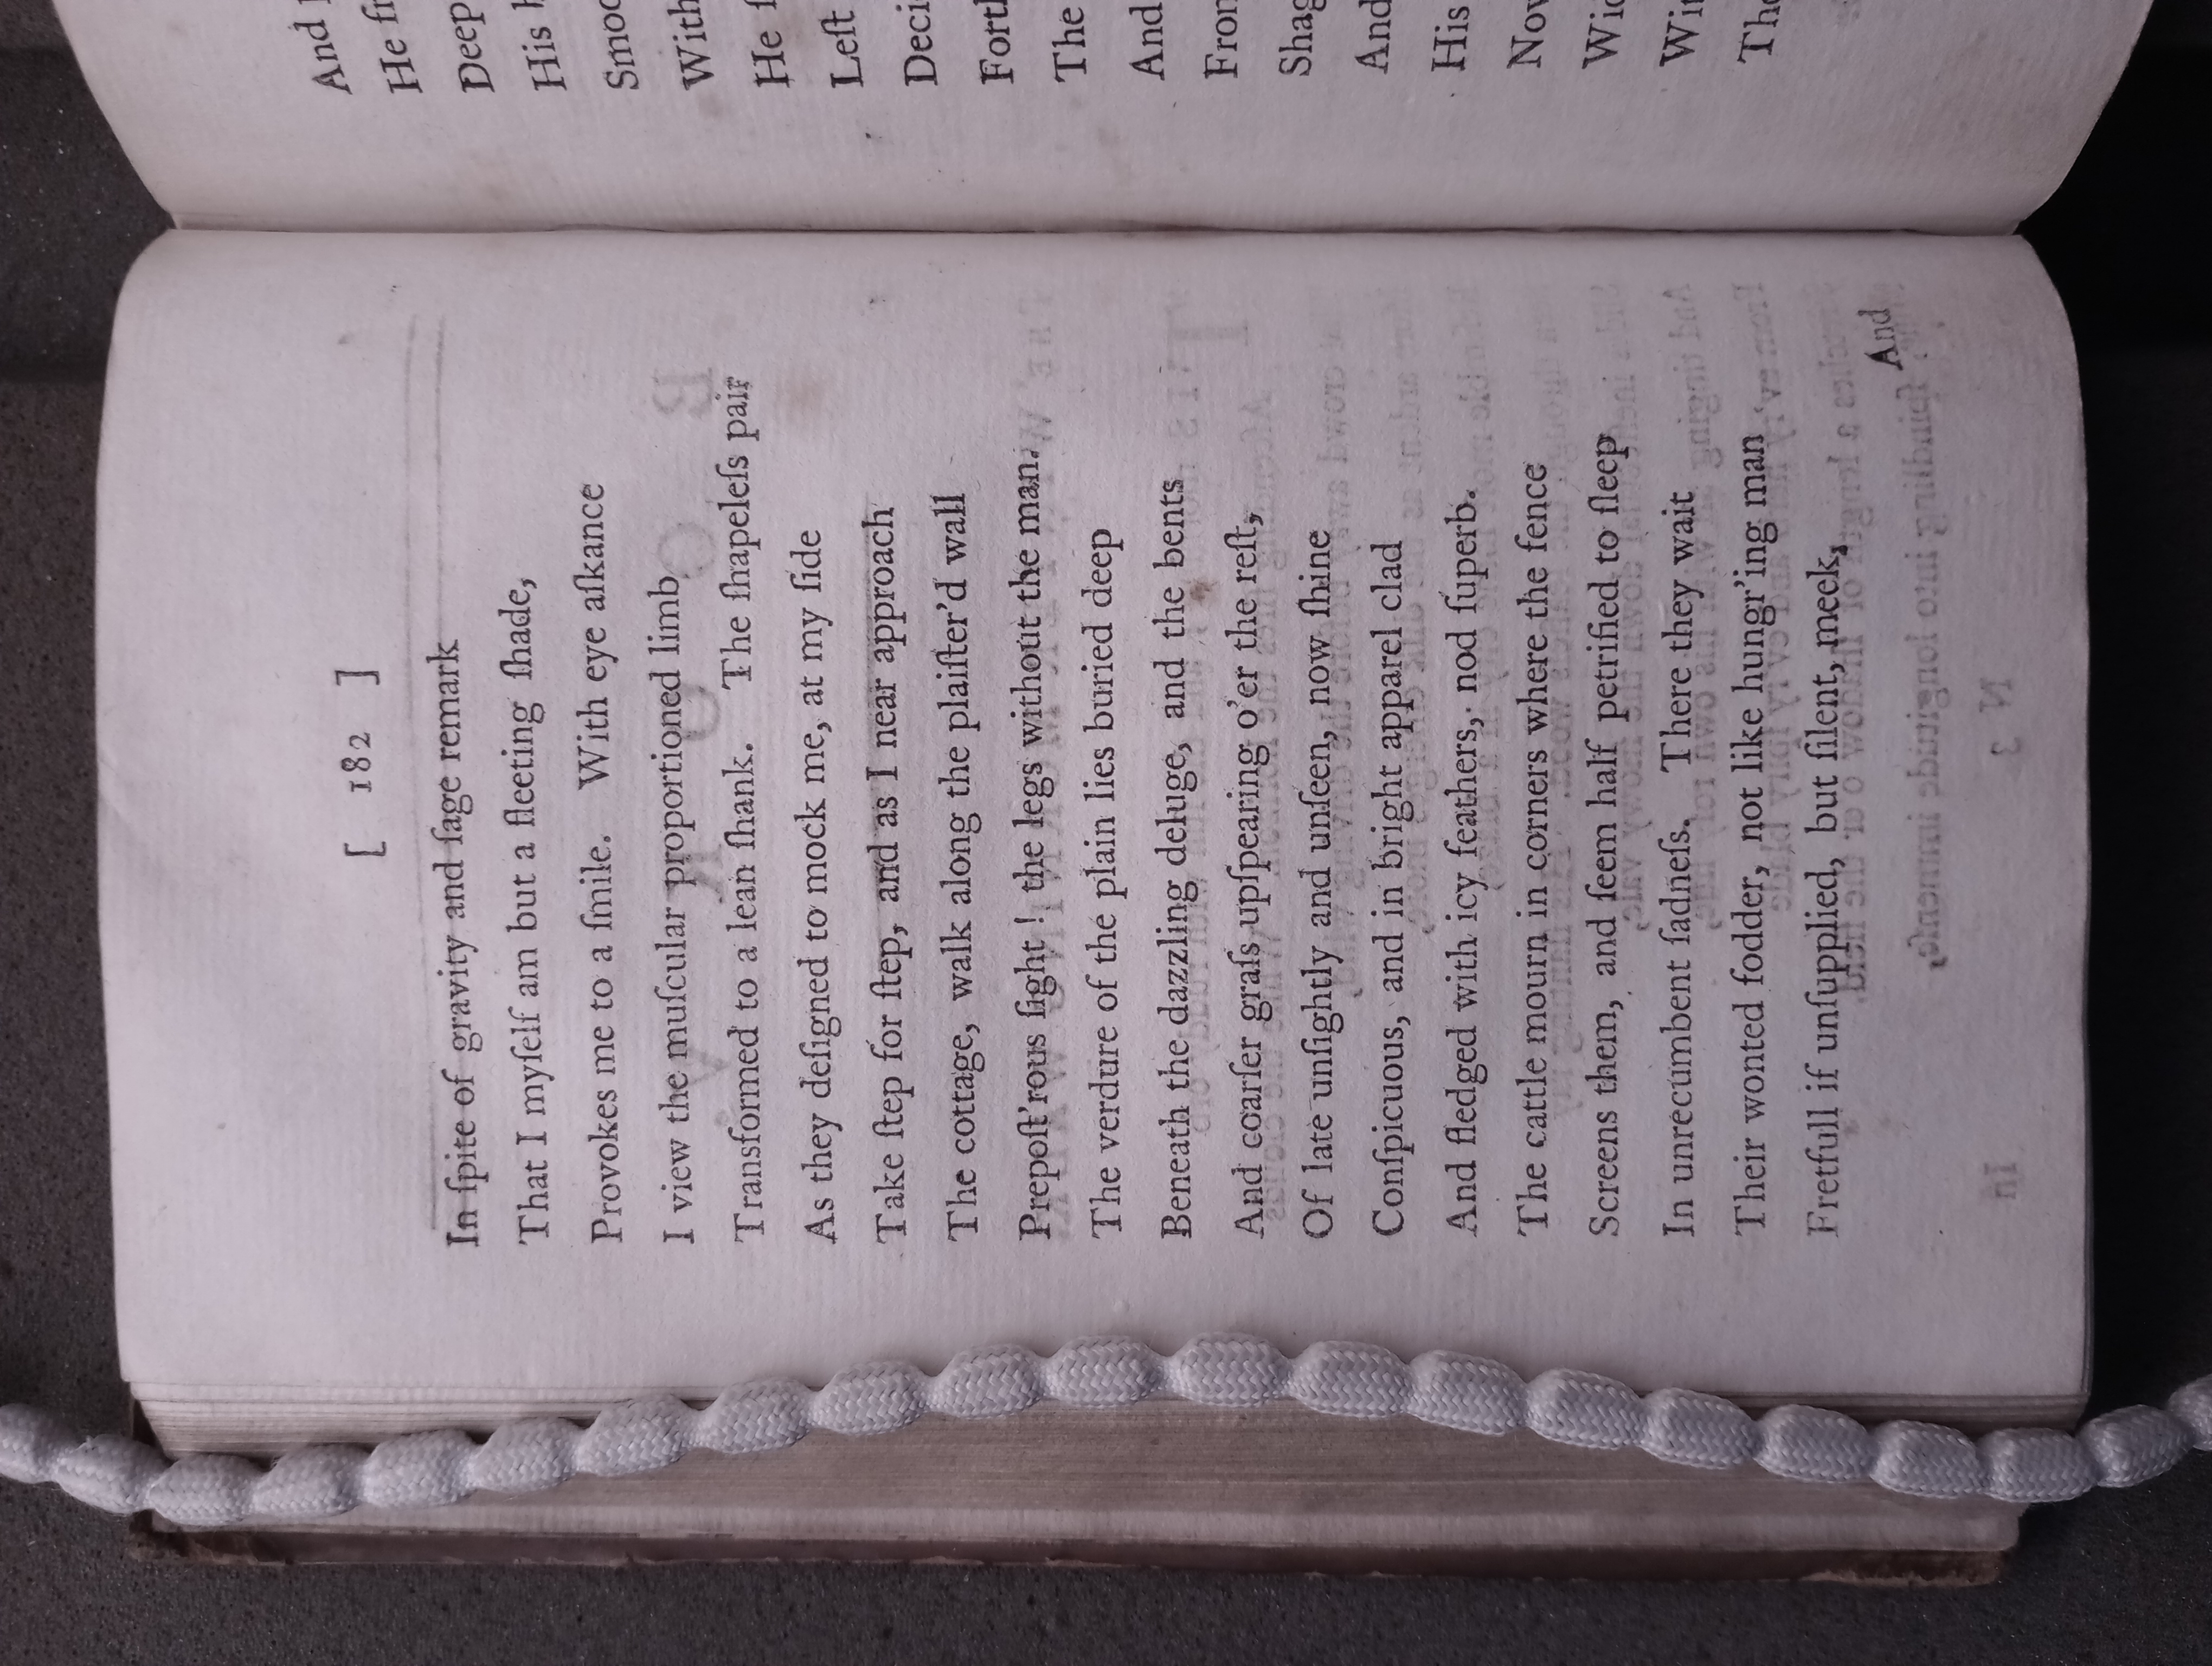 [ 182 ]
In ſpite of gravity and ſage remark
That I myſelf am but a fleeting ſhade,
Provokes me to a ſmile. With eye aſkance
I view the muſcular proportioned limb
Transformed to a lean ſhank. The ſhapeleſs pair
As they deſigned to mock me, at my ſide
Take ſtep for ſtep, and as I near approach
The cottage, walk along the plaiſter'd wall
Prepoſt'rous ſight ! the legs without the man.
The verdure of the plain lies buried deep
Beneath the dazzling deluge, and the bents
And coarſer graſs upſpearing o'er the reſt,
Of late unſightly and unſeen, now ſhine
Conſpicuous, and in bright apparel clad
And fledged with icy feathers, nod ſuperb.
The cattle mourn in corners where the fence
Screens them, and ſeem half petrified to ſleep
In unrecumbent ſadneſs. There they wait
Their wonted fodder, not like hungr'ing man
Fretfull if unſupplied, but ſilent, meek,
And
And
He
Deep
His
With
He
Left
The
And
And
His